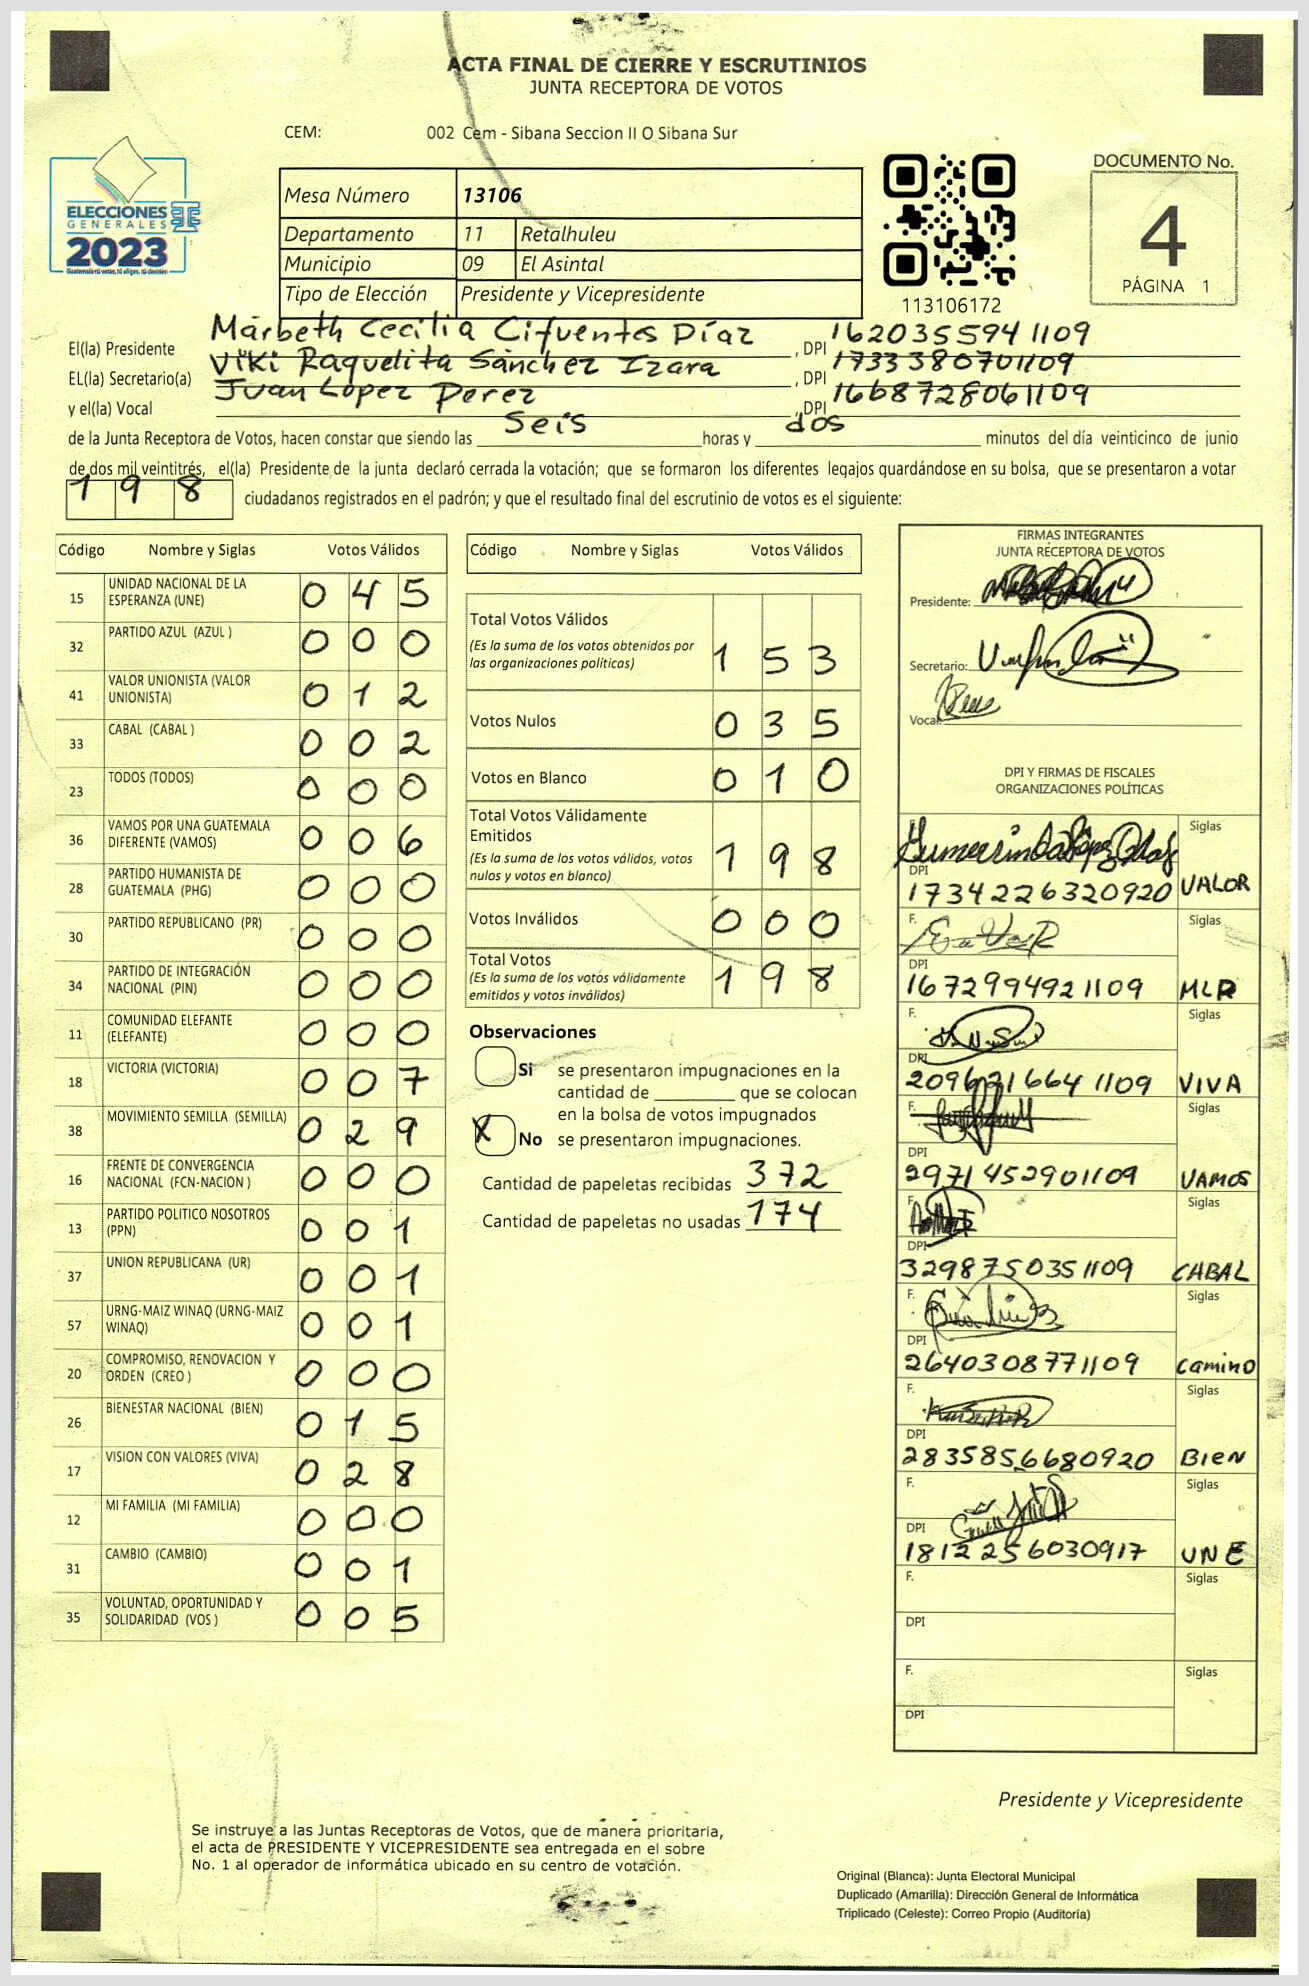 ACTA FINAL DE CIERRE Y ESCRUTINIOS
JUNTA RECEPTORA DE VOTOS
CEM: 002 Cem - Sibana Seccion II O Sibana Sur
ELECCIONES
GENERALES
2023
Guatemala tú votas, tú eliges, tú decides
Mesa Número 13106
Departamento 11 Retalhuleu
Municipio 09 El Asintal
Tipo de Elección Presidente y Vicepresidente
113106172
DOCUMENTO No.
4
PÁGINA 1
El(la) Presidente Marbeth Cecilia Cifuentes Díaz , DPI 1620355941109
EL(la) Secretario(a) Viki Raquelita Sánchez Izara , DPI 1733380701109
y el(la) Vocal Juan López Perez , DPI 1668728061109
de la Junta Receptora de Votos, hacen constar que siendo las seis horas y dos minutos del día veinticinco de junio
de dos mil veintitrés, el(la) Presidente de la junta declaró cerrada la votación; que se formaron los diferentes legajos guardándose en su bolsa, que se presentaron a votar
198 ciudadanos registrados en el padrón; y que el resultado final del escrutinio de votos es el siguiente:
Código Nombre y Siglas Votos Válidos
15 UNIDAD NACIONAL DE LA ESPERANZA (UNE) 0 4 5
32 PARTIDO AZUL (AZUL ) 0 0 0
41 VALOR UNIONISTA (VALOR UNIONISTA) 0 1 2
33 CABAL (CABAL ) 0 0 2
23 TODOS (TODOS) 0 0 0
36 VAMOS POR UNA GUATEMALA DIFERENTE (VAMOS) 0 0 6
28 PARTIDO HUMANISTA DE GUATEMALA (PHG) 0 0 0
30 PARTIDO REPUBLICANO (PR) 0 0 0
34 PARTIDO DE INTEGRACIÓN NACIONAL (PIN) 0 0 0
11 COMUNIDAD ELEFANTE (ELEFANTE) 0 0 0
18 VICTORIA (VICTORIA) 0 0 7
38 MOVIMIENTO SEMILLA (SEMILLA) 0 2 9
16 FRENTE DE CONVERGENCIA NACIONAL (FCN-NACION ) 0 0 0
13 PARTIDO POLITICO NOSOTROS (PPN) 0 0 1
37 UNION REPUBLICANA (UR) 0 0 1
57 URNG-MAIZ WINAQ (URNG-MAIZ WINAQ) 0 0 1
20 COMPROMISO, RENOVACION Y ORDEN (CREO ) 0 0 0
26 BIENESTAR NACIONAL (BIEN) 0 1 5
17 VISION CON VALORES (VIVA) 0 2 8
12 MI FAMILIA (MI FAMILIA) 0 0 0
31 CAMBIO (CAMBIO) 0 0 1
35 VOLUNTAD, OPORTUNIDAD Y SOLIDARIDAD (VOS ) 0 0 5
Código Nombre y Siglas Votos Válidos
Total Votos Válidos
(Es la suma de los votos obtenidos por
las organizaciones políticas) 1 5 3
Votos Nulos 0 3 5
Votos en Blanco 0 1 0
Total Votos Válidamente
Emitidos
(Es la suma de los votos válidos, votos
nulos y votos en blanco) 1 9 8
Votos Inválidos 0 0 0
Total Votos
(Es la suma de los votos válidamente
emitidos y votos inválidos) 1 9 8
Observaciones
Si se presentaron impugnaciones en la
cantidad de ________ que se colocan
en la bolsa de votos impugnados
X No se presentaron impugnaciones.
Cantidad de papeletas recibidas 372
Cantidad de papeletas no usadas 174
FIRMAS INTEGRANTES
JUNTA RECEPTORA DE VOTOS
Presidente:
Secretario:
Vocal:
DPI Y FIRMAS DE FISCALES
ORGANIZACIONES POLÍTICAS
Siglas
DPI
1734226320920 VALOR
F. Siglas
DPI
1672994921109 MLP
F. Siglas
DPI
2096216641109 VIVA
F. Siglas
DPI
2971452901109 VAMOS
F. Siglas
DPI
3298750351109 CABAL
F. Siglas
DPI
2640308771109 Camino
F. Siglas
DPI
2835856680920 BIEN
F. Siglas
DPI
1812256030917 UNE
F. Siglas
DPI
F. Siglas
DPI
Presidente y Vicepresidente
Se instruye a las Juntas Receptoras de Votos, que de manera prioritaria,
el acta de PRESIDENTE Y VICEPRESIDENTE sea entregada en el sobre
No. 1 al operador de informática ubicado en su centro de votación.
Original (Blanca): Junta Electoral Municipal
Duplicado (Amarilla): Dirección General de Informática
Triplicado (Celeste): Correo Propio (Auditoría)